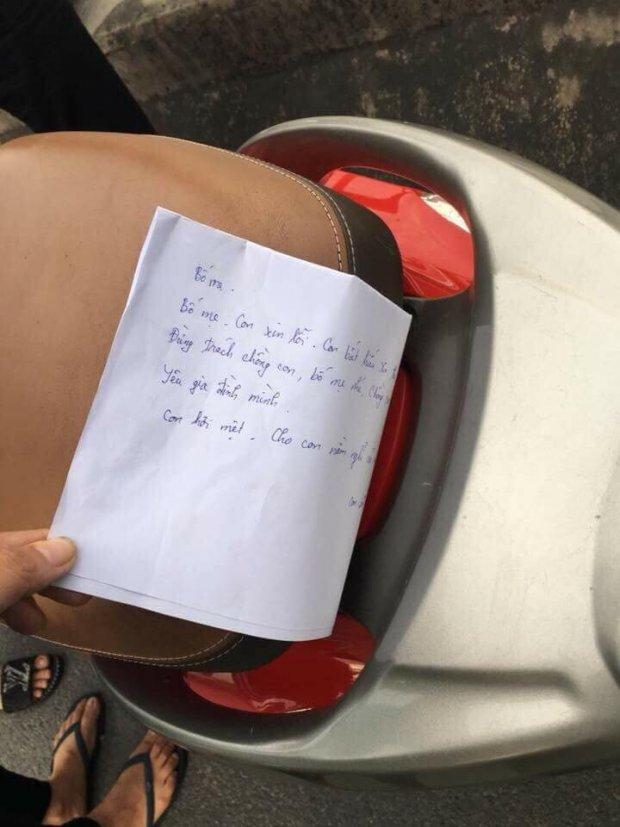 Bố mẹ.
Bố mẹ. Con xin lỗi. Con bất hiếu xin
Đừng trách chồng con, bố mẹ nhé, chồng
Yêu gia đình mình.
Con hơi mệt. Cho con nằm nghỉ
con